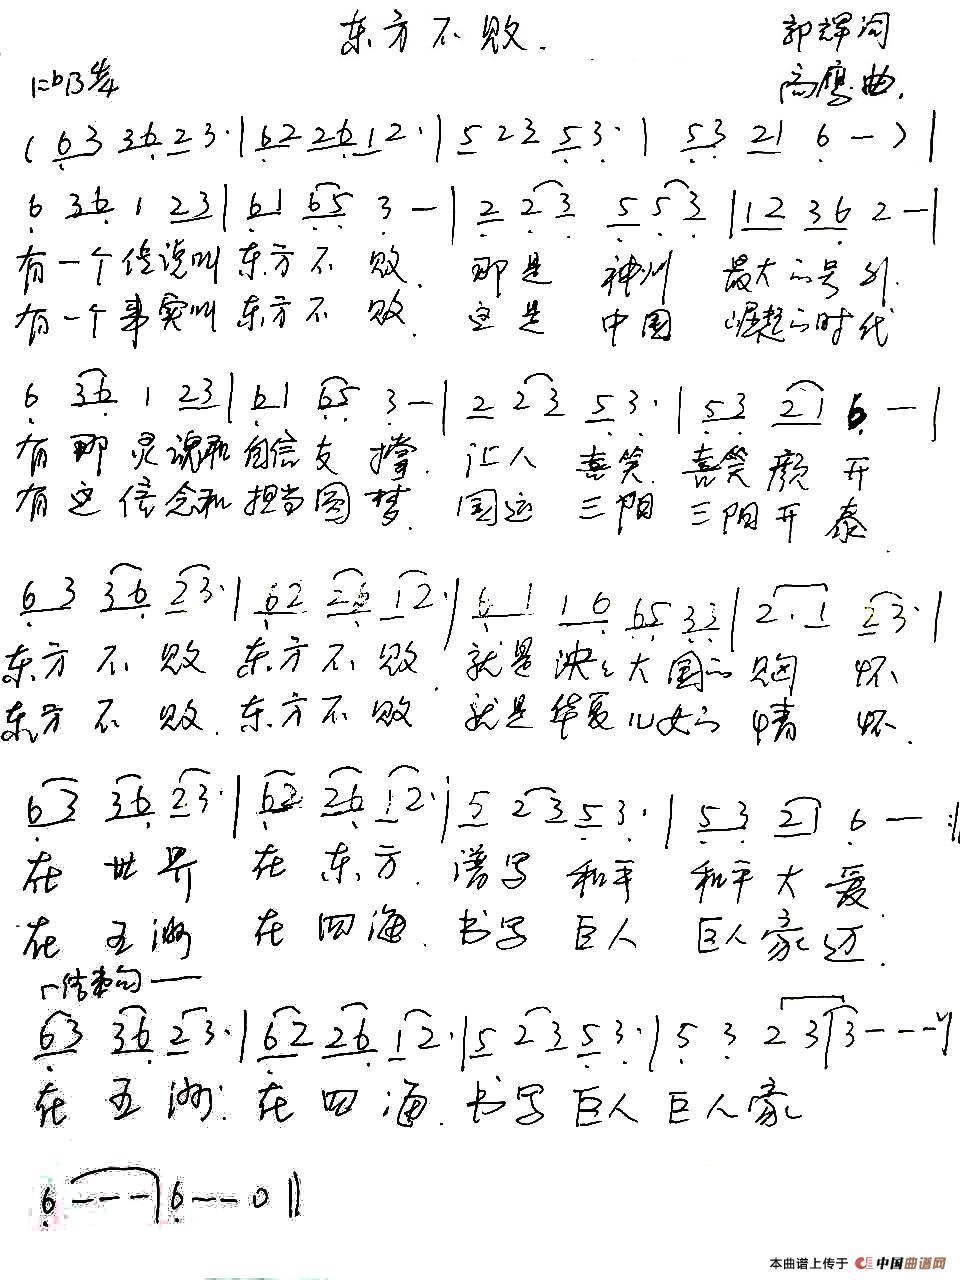 东方不败.
郭辉词
1=bB 4/4
高鹰曲.
( 6 3 3 6 2 3· | 6 2 2 6 1 2· | 5 2 3 5 3· | 5 3 2 1 6 — ) |
6 3 6 1 2 3 | 6 1 6 5 3 — | 2 2 3 5 5 3 | 1 2 3 6 2 — |
有一个传说叫东方不败. 那是神州最大的号外.
有一个事实叫东方不败. 这是中国崛起的时代
6 3 6 1 2 3 | 6 1 6 5 3 — | 2 2 3 5 3· | 5 3 2 1 6 — |
有那灵魂和自信支撑. 让人喜笑.喜笑颜开
有这信念和担当圆梦. 国运三阳三阳开泰.
6 3 3 6 2 3· | 6 2 2 6 1 2· | 6 1 1 6 6 5 3 3 | 2· 1 2 3· |
东方不败东方不败.就是泱泱大国的胸怀
东方不败.东方不败就是华夏儿女的情怀.
6 3 3 6 2 3· | 6 2 2 6 1 2· | 5 2 3 5 3· | 5 3 2 1 6 — :||
在世界在东方.谱写和平和平大爱.
在五洲在四海.书写巨人巨人豪迈.
结束句——
6 3 3 6 2 3· | 6 2 2 6 1 2· | 5 2 3 5 3· | 5 3 2 3 | 3 - - -
在五洲.在四海.书写巨人巨人豪
6 - - - | 6 - - 0 ||
本曲谱上传于 中国曲谱网